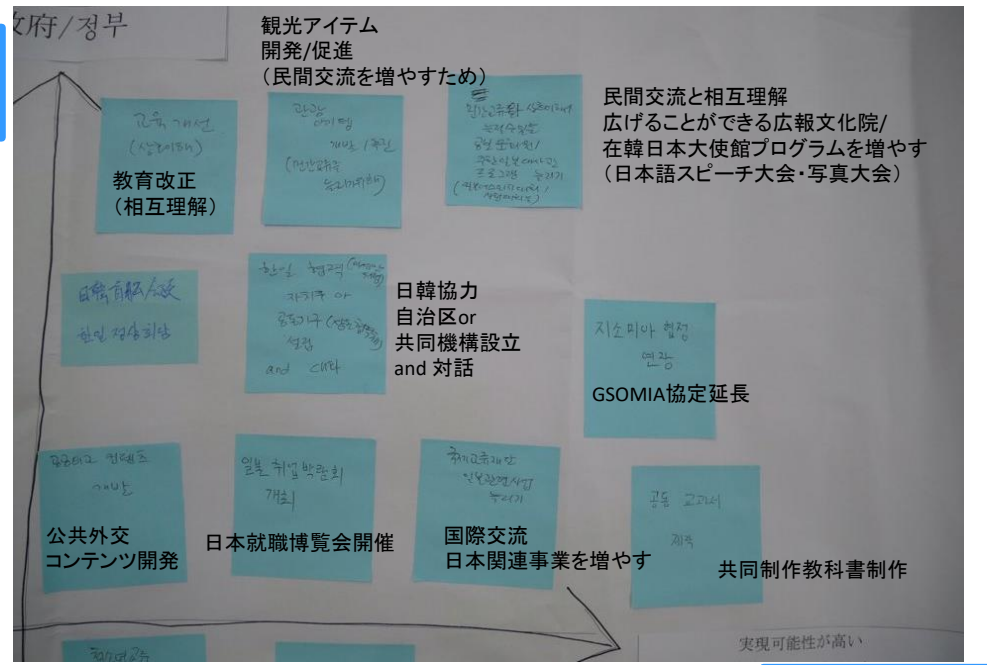 政府/정부
観光アイテム
開発/促進
(民間交流を増やすため)
교육 개선
(상호이해)
教育改正
(相互理解)
관광
아이템
개발/촉진
(민간교류를
늘리기위해)
민간교류와 상호이해를
공보문화원/
주한일본대사관
프로그램 늘리기
民間交流と相互理解
広げることができる広報文化院/
在韓日本大使館プログラムを増やす
(日本語スピーチ大会・写真大会)
日韓首脳会談
한일 정상회담
한일 협력
자치구 or
공동기구
설립
and 대화
日韓協力
自治区or
共同機構設立
and 対話
지소미아 협정
연장
GSOMIA協定延長
공공외교 컨텐츠
개발
公共外交
コンテンツ開発
일본 취업박람회
개최
日本就職博覧会開催
국제교류재단
일본관련사업
늘리기
国際交流
日本関連事業を増やす
공동 교과서
제작
共同制作教科書制作
実現可能性が高い